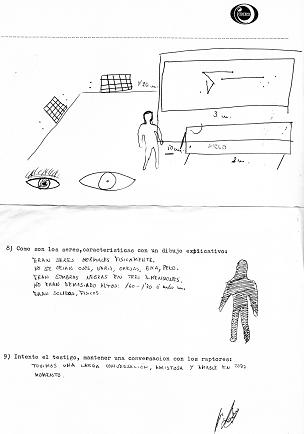 1'20 m.
3 m.
10 m
HIELO
2 m.
8) Como son los seres,caracteristicas con un dibujo explicativo:
ERAN SERES NORMALES FISICAMENTE.
NO SE VEIAN OJOS, NARIZ, OREJAS, BOCA, PELO.
ERAN SOMBRAS NEGRAS EN TRES DIMENSIONES.
NO ERAN DEMASIADO ALTOS:
ERAN SOLIDOS, FISICOS.
9) Intento el testigo, mantener una conversacion con los raptores:
TUVIMOS UNA LARGA CONVERSACION, AMISTOSA Y AMABLE EN TODO
MOMENTO.